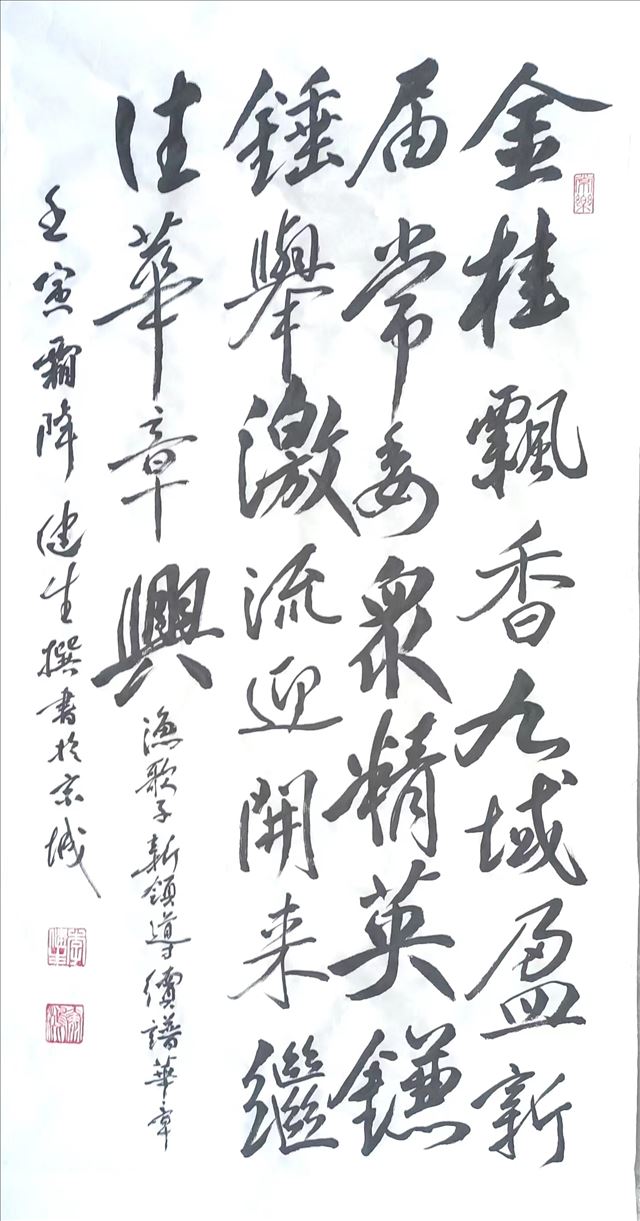 金桂飄香九域盈新
届常委眾精英鐮
錘舉激流迎開来繼
往華章興
漁歌子新領導續譜華章
壬寅霜降健生撰書於京城